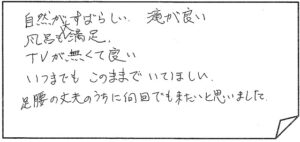 自然がすばらしい 湯が良い
風呂も満足.
TVが無くて良い
いつまでも このままで いてほしい.
足腰の丈夫のうちに何回でも来たいと思いました.